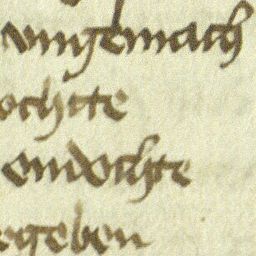 vngemach
ochtte
endochte
egeben